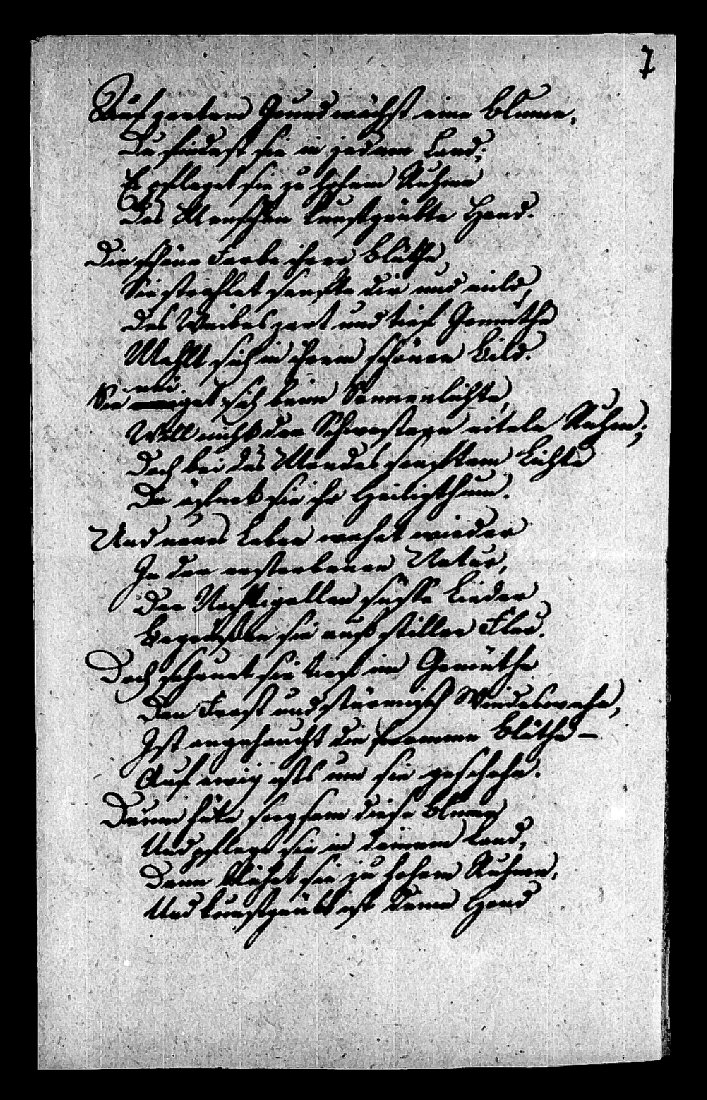 7
Auf zartem Grund wächst eine Blume,
Du findest sie in jedem Land;
Es pfleget sie zu hohem Ruhme
Des Menschen kunstgeübte Hand.
Die schöne Farbe ihrer Blüthe,
Sie strahlet sanfte dir und mild,
Des Weibes zart und tief Gemüthe
Mahlt sich in ihrem schönen Bild.
Sie neiget sich beim Sonnenlichte,
Will nicht der Schwestern eitele Ruhm;
Doch bei des Mondes sanftem Lichte
Da öfnet sie ihr Heiligthum.
Und neues Leben wehet wieder
In der erstorbenen Natur,
Der Nachtigallen süsse Lieder
Begrüssen sie auf stiller Flur.
Doch scheuet sie tief im Gemüthe
Den Frost und stürmisch Windeswehn,
Ist angehaucht die fromme Blüthe –
Auf ewig ists um sie geschehn.
Drum hüte sorgsam diese Blume
Und pflege sie in Deinem Land,
Dann blühet sie zu hohem Ruhme,
Und kunstgeübt ist Deine Hand